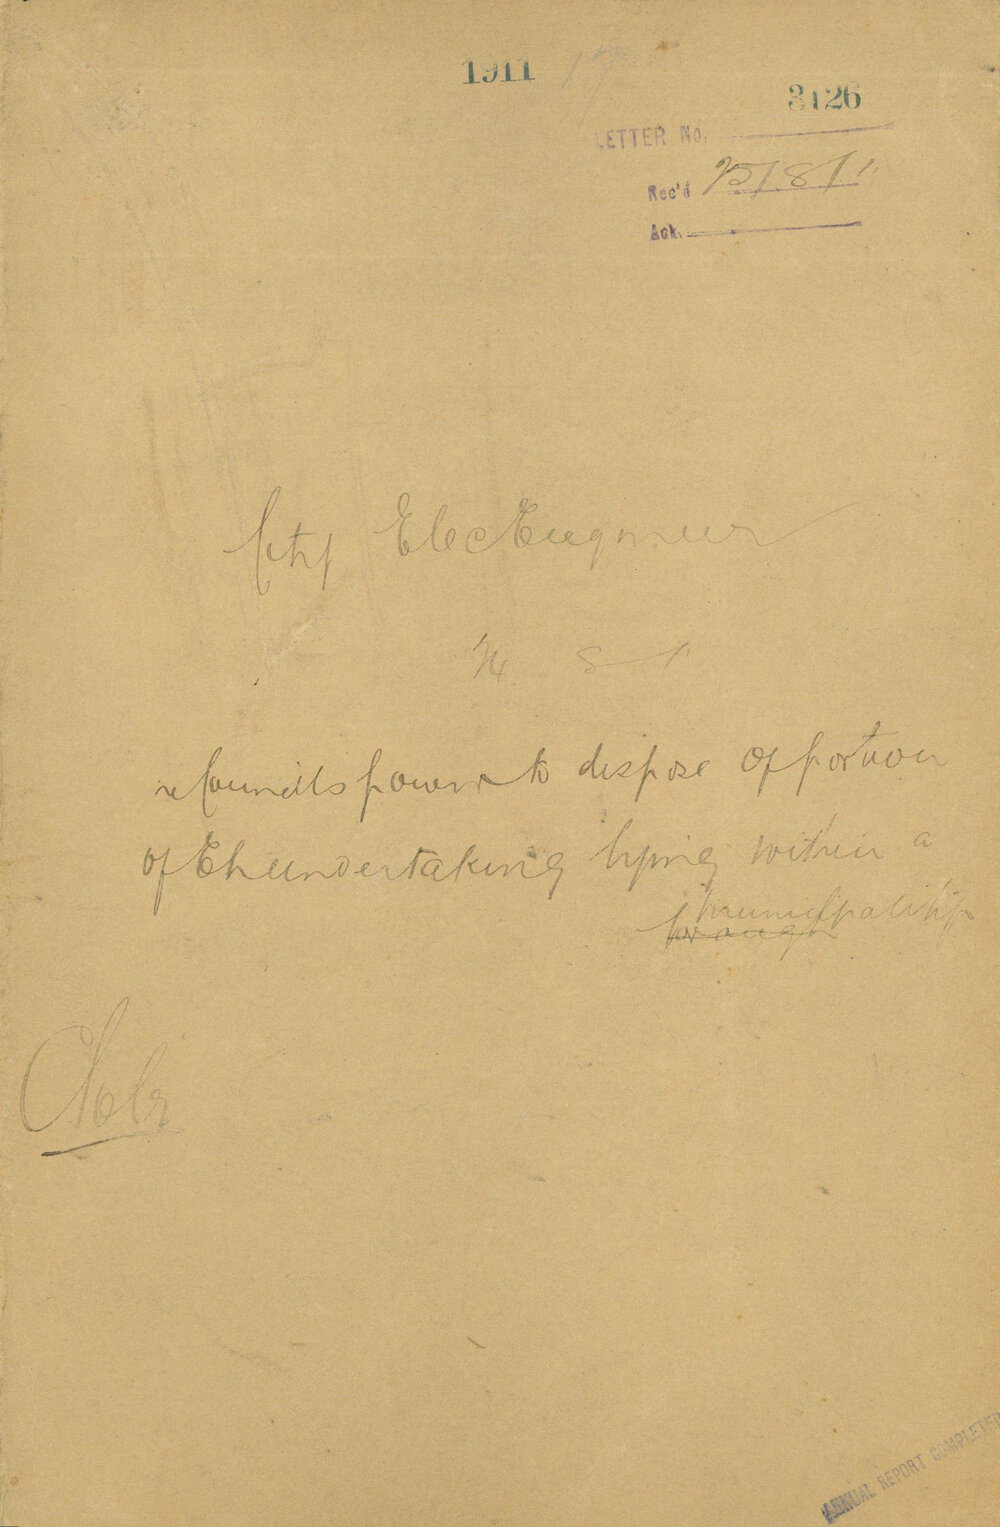 1911
3126
LETTER No.
Rec'd 25/8/11
Ack.
City Elec Engineer
24 8 11
re Councils power to dispose of portion
of El undertaking lying within a
municipality
borough
Solr
ANNUAL REPORT COMPLETED